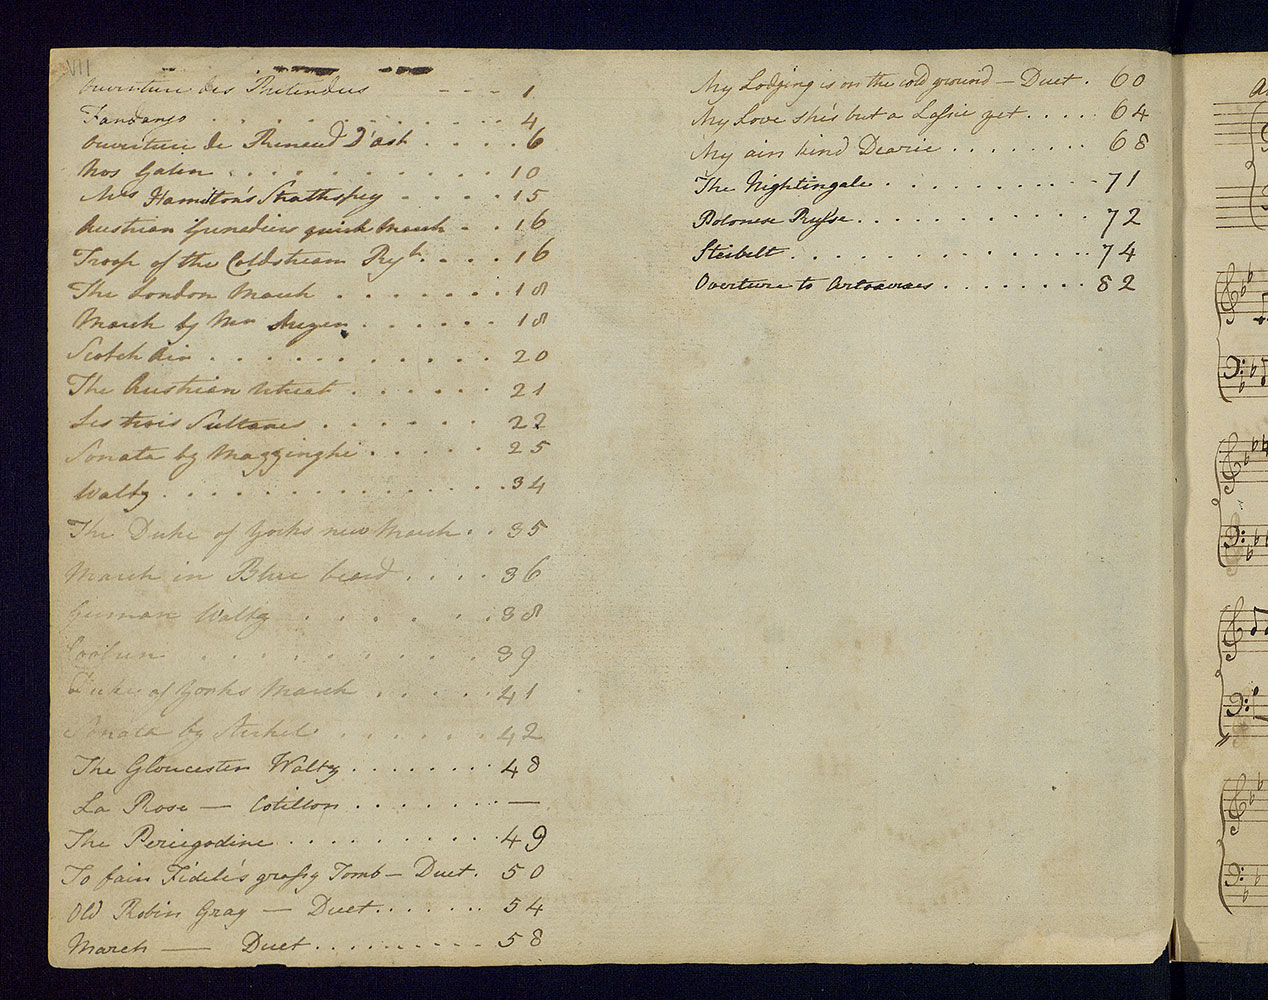 VII
Ouverture des Pretendus - - - 1
Fandango . . . . . . . . . . . 4
Ouverture de Renaud D'ast . . . . . 6
Mos . . . . . . . . . . 10
Mrs Hamilton's Strathspey . . . . . 15
Austrian Grenadiers quick March - . . 16
Troop of the Coldstream Rgt. . . . . 16
The London March . . . . . . . . 18
March by Mr . . . . . . 18
Scotch Air . . . . . . . . . . . 20
The Austrian retreat . . . . . . 21
Les trois Sultanes . . . . . . 22
Sonata by Mazzinghi . . . . . 25
Waltz . . . . . . . . . . . . . . . 34
The Duke of Yorks new March . . 35
March in Blue beard . . . . 36
German Waltz . . . . . . . 38
. . . . . . . . . 39
Duke of Yorks March . . . . . 41
Sonata by . . . . . . . 42
The Gloucester Waltz . . . . . . . . 48
La Rose — Cotillon . . . . . . . . —
The Perigodine . . . . . . . . . . . 49
To fair Fidele's grassy Tomb — Duet . 50
Old Robin Gray — Duet . . . . . . . 54
March — Duet . . . . . . . . . . 58
My Lodging is on the cold ground — Duet . 60
My Love she's but a Lassie yet . . . . . 64
My ain kind Dearie . . . . . . . . 68
The Nightingale . . . . . . . . . . - 71
Polonese Rysse . . . . . . . . . . . 72
Steibelt . . . . . . . . . . . . . . 74
Overture to Artaxerxes . . . . . . . . 82